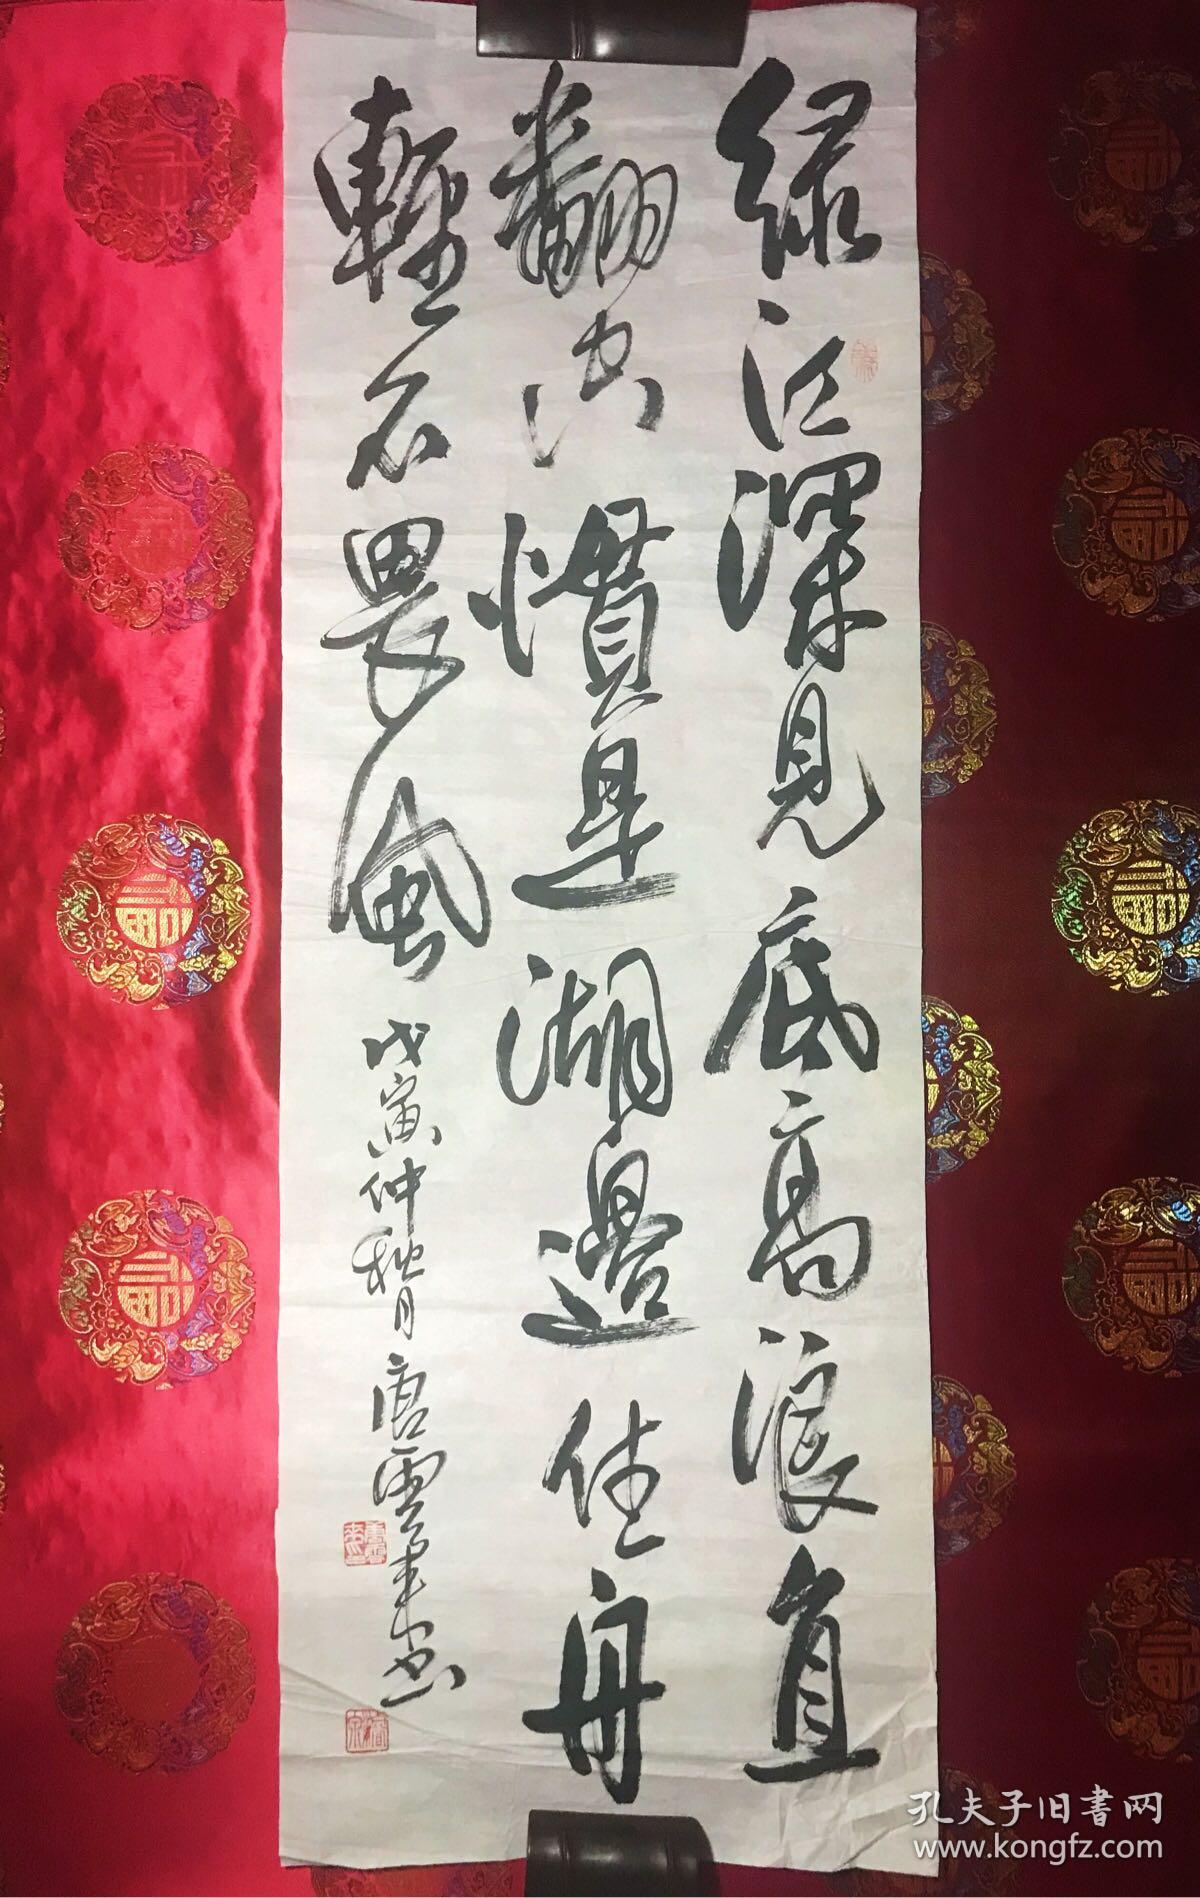 绿江深見底高浪直
翻空慣是湖邊住舟
輕不畏風 戊寅仲秋月 唐雲来书
孔夫子旧書网
www.kongfz.com